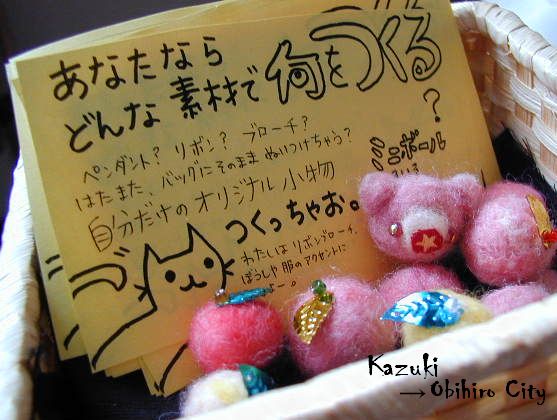 あなたなら
どんな素材で何をつくる?
ペンダント? リボン? ブローチ?
はたまた、バッグにそのままぬいつけちゃう?
自分だけのオリジナル小物
つくっちゃお。
わたしは リボンブローチ、
ぼうしや服のアクセントに
ミニボール
Kazuki
→Obihiro City